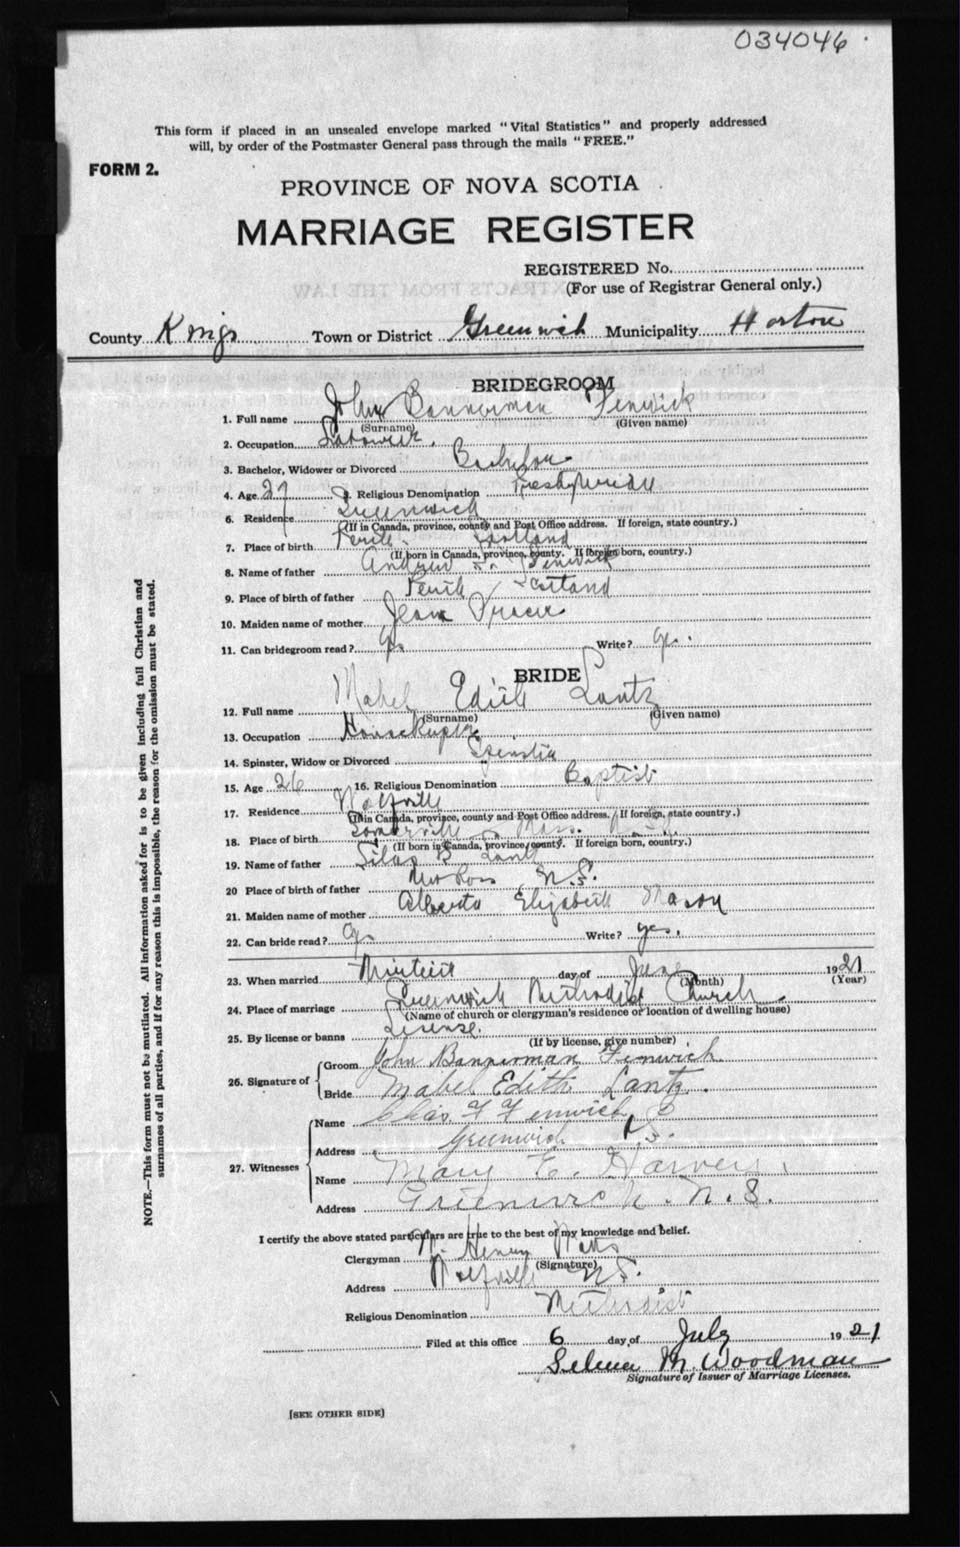 034046
This form if placed in an unsealed envelope marked "Vital Statistics" and properly addressed
will, by order of the Postmaster General pass through the mails "FREE."
FORM 2.
PROVINCE OF NOVA SCOTIA
MARRIAGE REGISTER
REGISTERED No.
(For use of Registrar General only.)
County Kings Town or District Greenwich Municipality Horton
BRIDEGROOM
1. Full name John Bannerman Fenwick
(Surname) (Given name)
2. Occupation
3. Bachelor, Widower or Divorced Bachelor
4. Age 27 5. Religious Denomination Presbyterian
6. Residence Greenwich
(If in Canada, province, county and Post Office address. If foreign, state country.)
7. Place of birth Scotland
(If born in Canada, province, county. If foreign born, country.)
8. Name of father Andrew Fenwick
9. Place of birth of father Scotland
10. Maiden name of mother Jean
11. Can bridegroom read? Write?
BRIDE
12. Full name Mabel Edith Lantz
(Surname) (Given name)
13. Occupation Housekeeper
14. Spinster, Widow or Divorced Spinster
15. Age 26 16. Religious Denomination Baptist
17. Residence Wolfville
(If in Canada, province, county and Post Office address. If foreign, state country.)
18. Place of birth Somerville Mass.
(If born in Canada, province, county. If foreign born, country.)
19. Name of father Silas B Lantz
20 Place of birth of father New Ross N.S.
21. Maiden name of mother Alberta Elizabeth Mason
22. Can bride read? Write? yes.
23. When married day of June 1921
(Month) (Year)
24. Place of marriage Greenwich Methodist Church.
(Name of church or clergyman's residence or location of dwelling house)
25. By license or banns License.
(If by license, give number)
26. Signature of
Groom John Bannerman Fenwick
Bride Mabel Edith Lantz.
27. Witnesses
Name Chas. F Fenwick
Address Greenwich N.S.
Name Mary E. Harvey.
Address Greenwich. N.S.
I certify the above stated particulars are true to the best of my knowledge and belief.
Clergyman Henry
(Signature)
Address Wolfville N.S.
Religious Denomination Methodist
Filed at this office 6 day of July 1921
M. Woodman
Signature of Issuer of Marriage Licenses.
[SEE OTHER SIDE]
NOTE.—This form must not be mutilated. All information asked for is to be given including full Christian and
surnames of all parties, and if for any reason this is impossible, the reason for the omission must be stated.